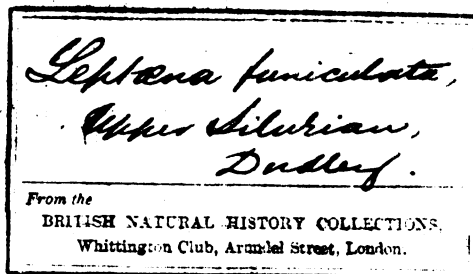 Leptæna funiculata,
Upper Silurian,
Dudley.
From the
BRITISH NATURAL HISTORY COLLECTIONS,
Whittington Club, Arundel Street, London.